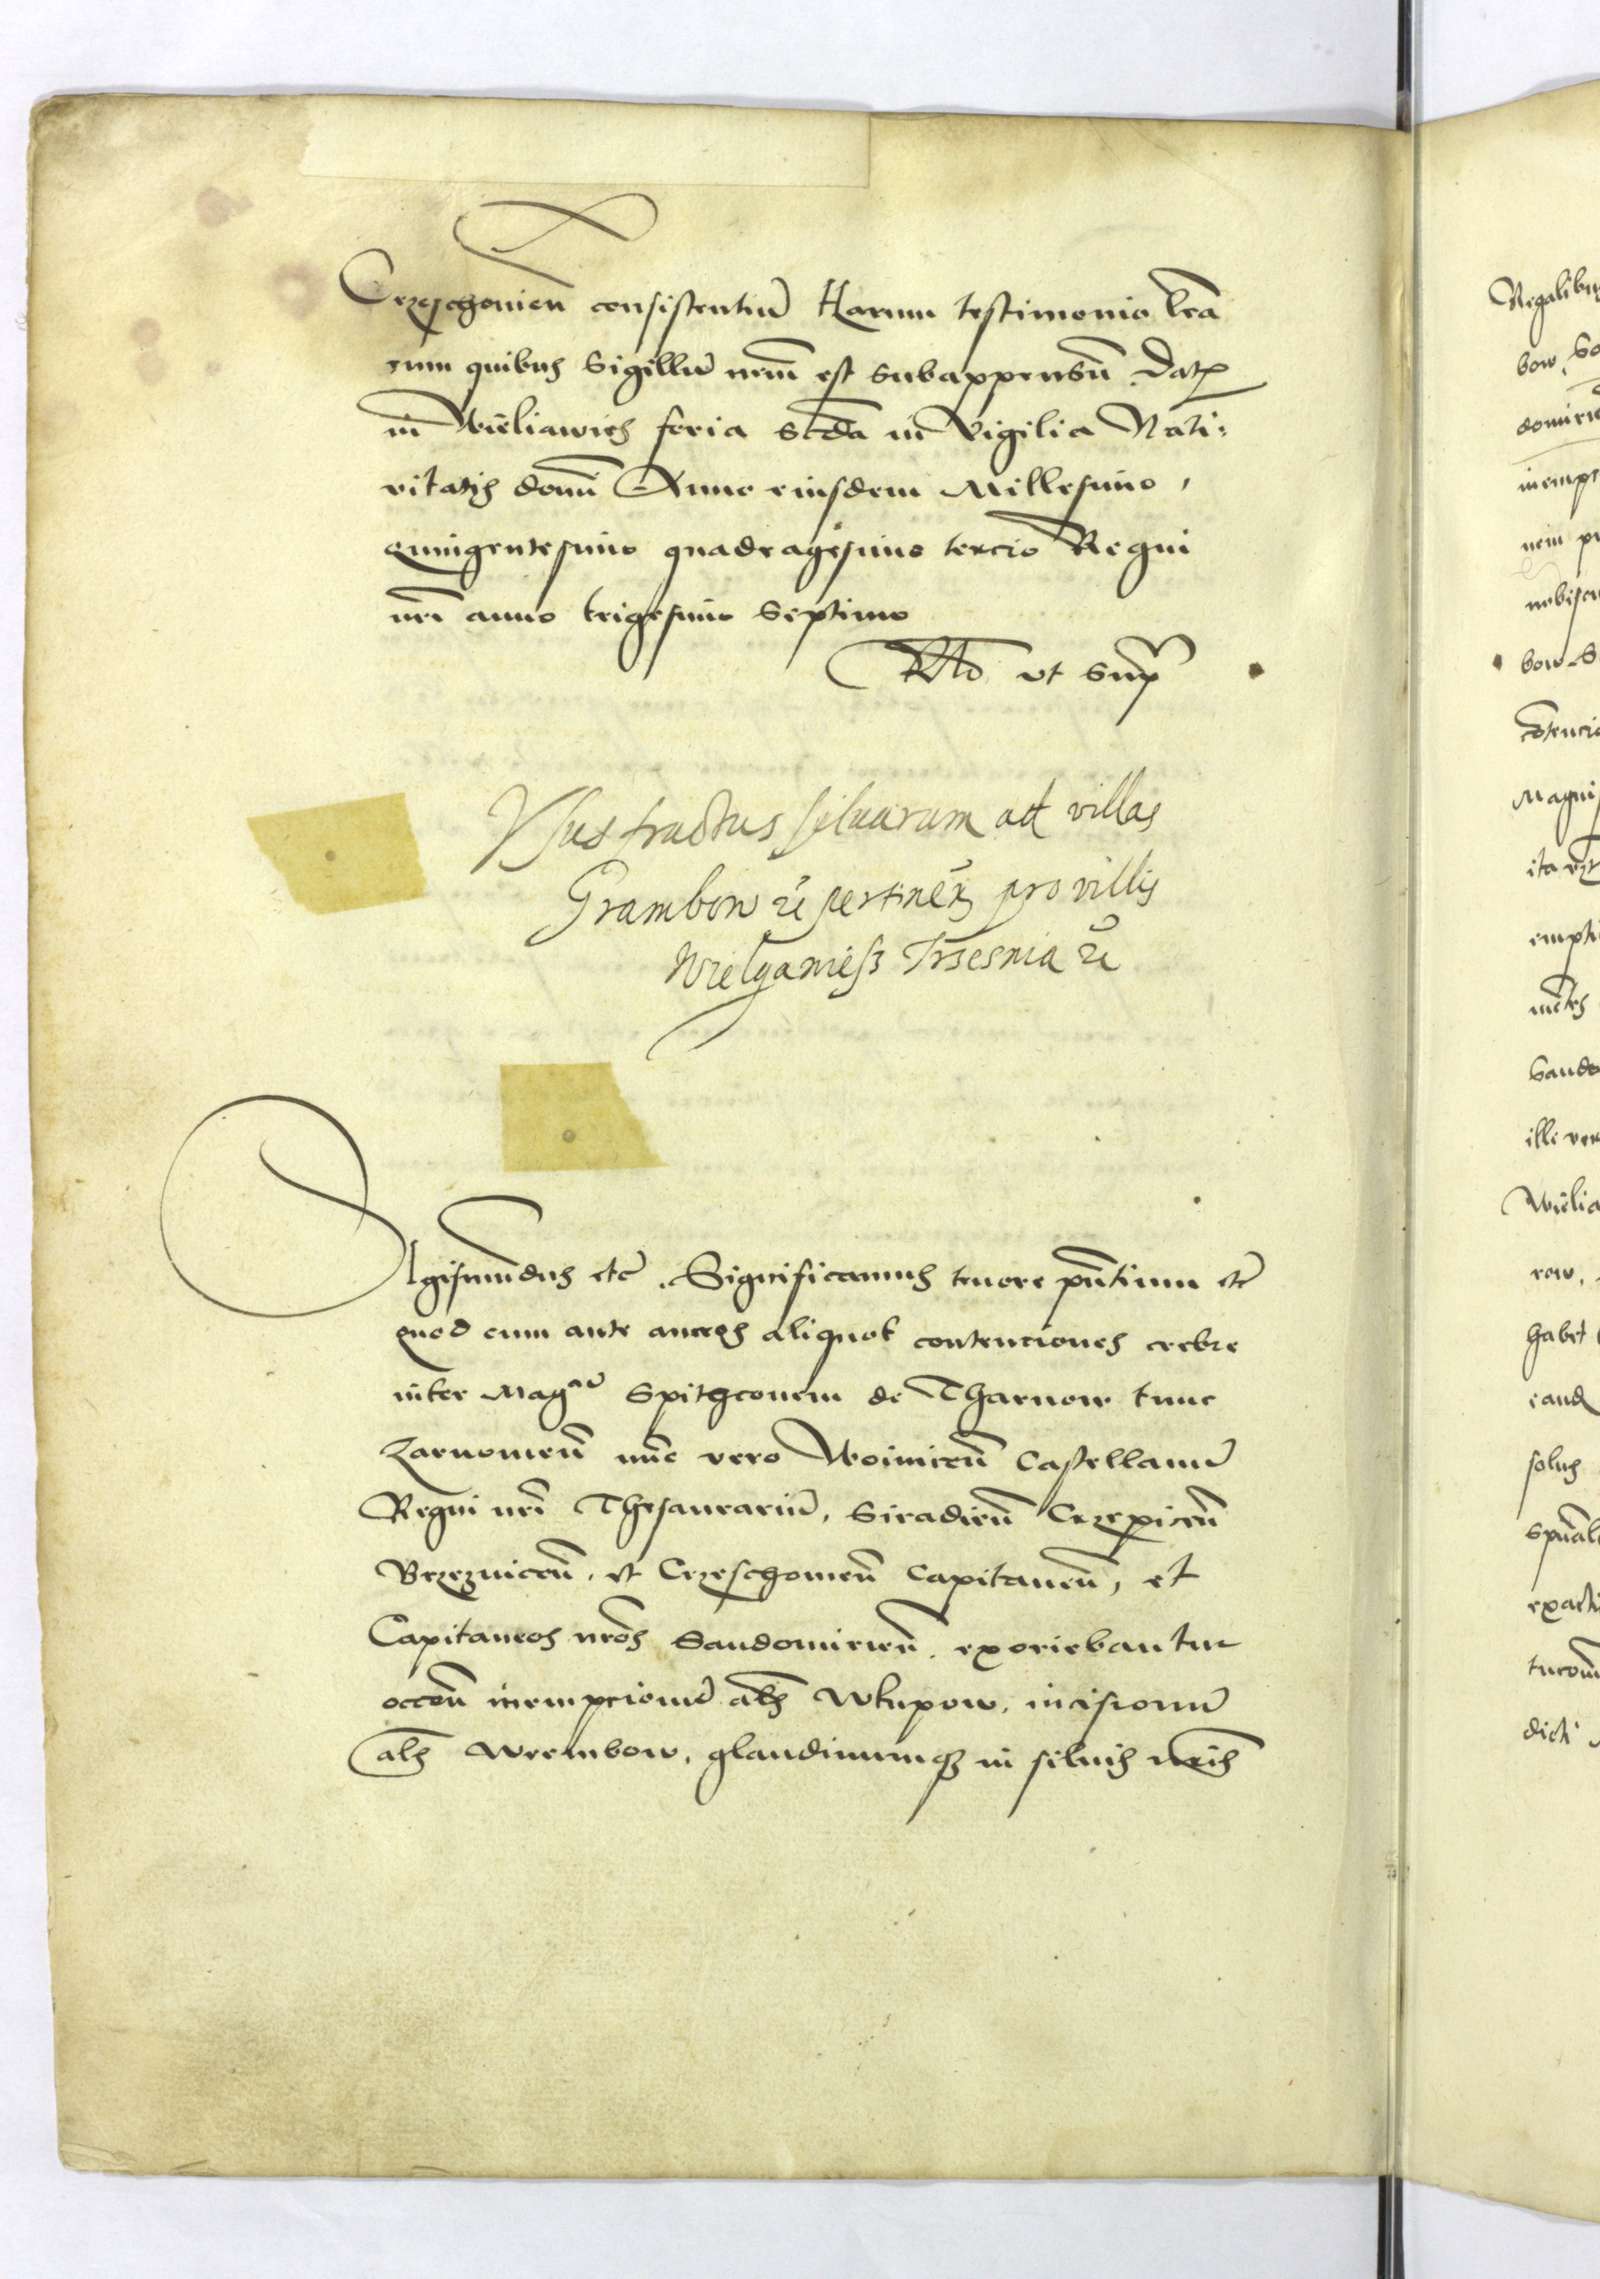 Crzeschonien consistentiu Harum testimonio lrã
cum quibus Sigillũ nrm̃ est subappensũ Datũ
in Wieliawies feria Scda in Vigilia Nati:
vitatis domĩ Anno eiusdem Millesimo,
quingentesimo quadragesimo tercio Regni
nrĩ anno trigesimo Septimo
ut sup
Vsusfructus siluarum ad villas
Grambow &c pertinen pro villis
Wielganiess Trsesnia &c
Sigismundus etc̃. Significamus tenore pñtium etc̃
quod cum ante annos aliquot contenciones crebre
inter Magcũ Spithconem de Tharnow tunc
Zarnowieñ nũc vero Woiniceñ Castellanũ
Regni nrĩ Thesaurariũ, Siradieñ Crzepiceñ
Brzezniceñ, et Crzeschowieñ Capitaneũ, et
Capitaneos nrõs Sandomirieñ. exoriebantur
occoñ inempcionũ als Wkupow, incisionũ
als Wrembow, glandinumq3 in siluis nrĩs
Regalibus
bow, So
domirie
inempt
nem pr
nobiscu
bow S
cõtencio
Magnif
ita
empti
Sando
ille ver
Wielia
row,
habet
eand
solus
exacti
dicti